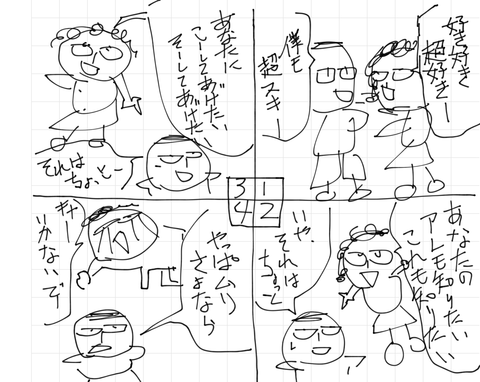 好き好き
超好きー
僕も
超スキー
あなたの
アレも知りたい
これも知りたい
いや、
それは
ちょっと
あなたに
こーしてあげたい
そーしてあげたい
それは
ちょっとー
やっぱムリ
さよなら
いかないでー
3 1
4 2